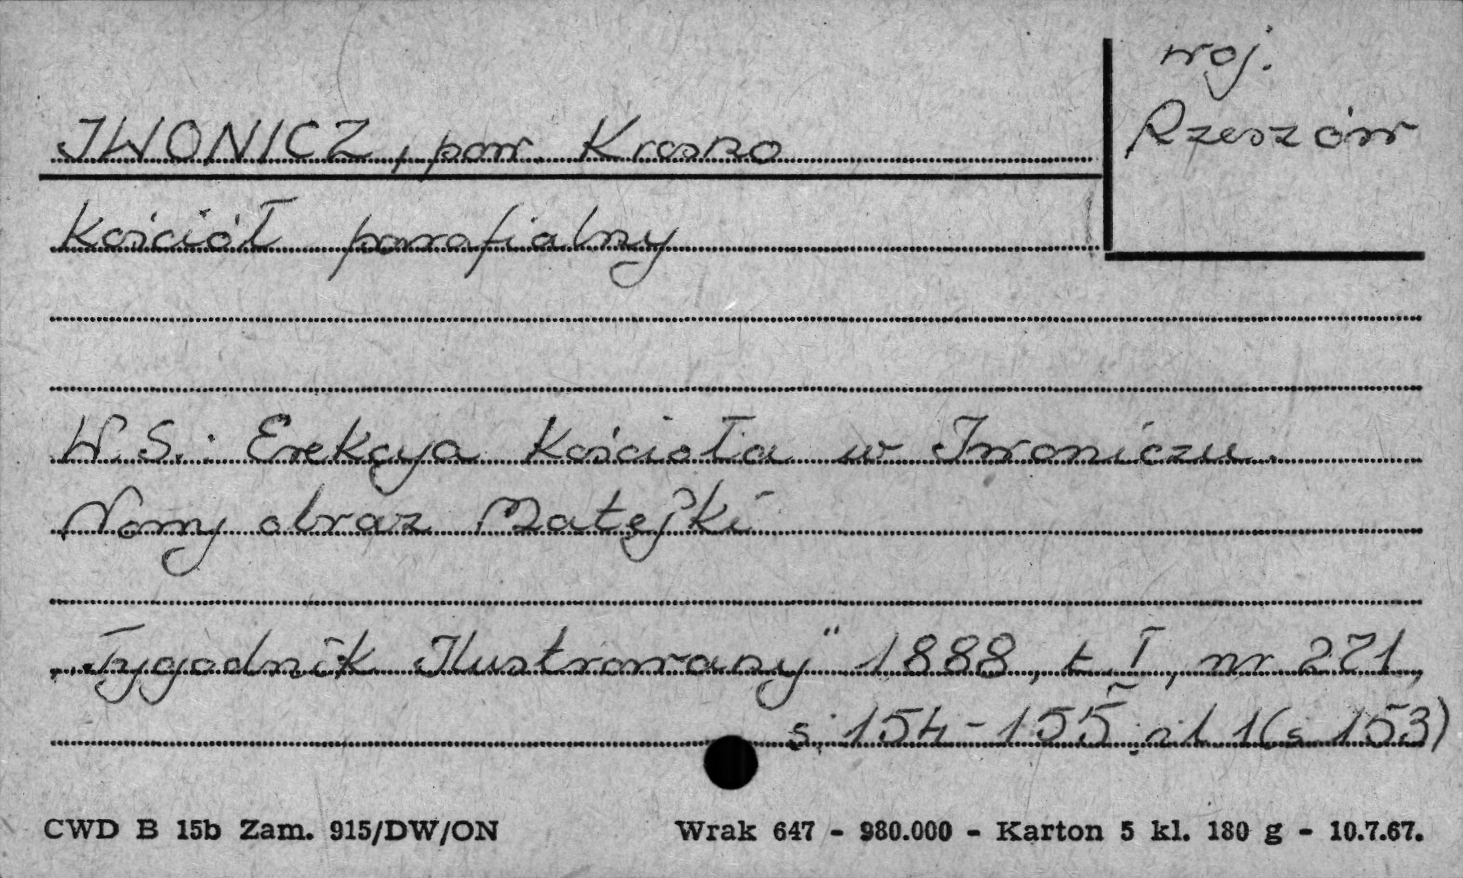 woj.
Rzeszów
IWONICZ, pow. Krosno
Kościół parafialny
W. S.: Erekcya Kościoła w Iwoniczu.
Nowy obraz Matejki
„Tygodnik Ilustrowany" 1888, t. I, nr 271,
s. 154-155; il. 1 (s 153)
CWD B 15b Zam. 915/DW/ON
Wrak 647 - 980.000 - Karton 5 kl. 180 g - 10.7.67.